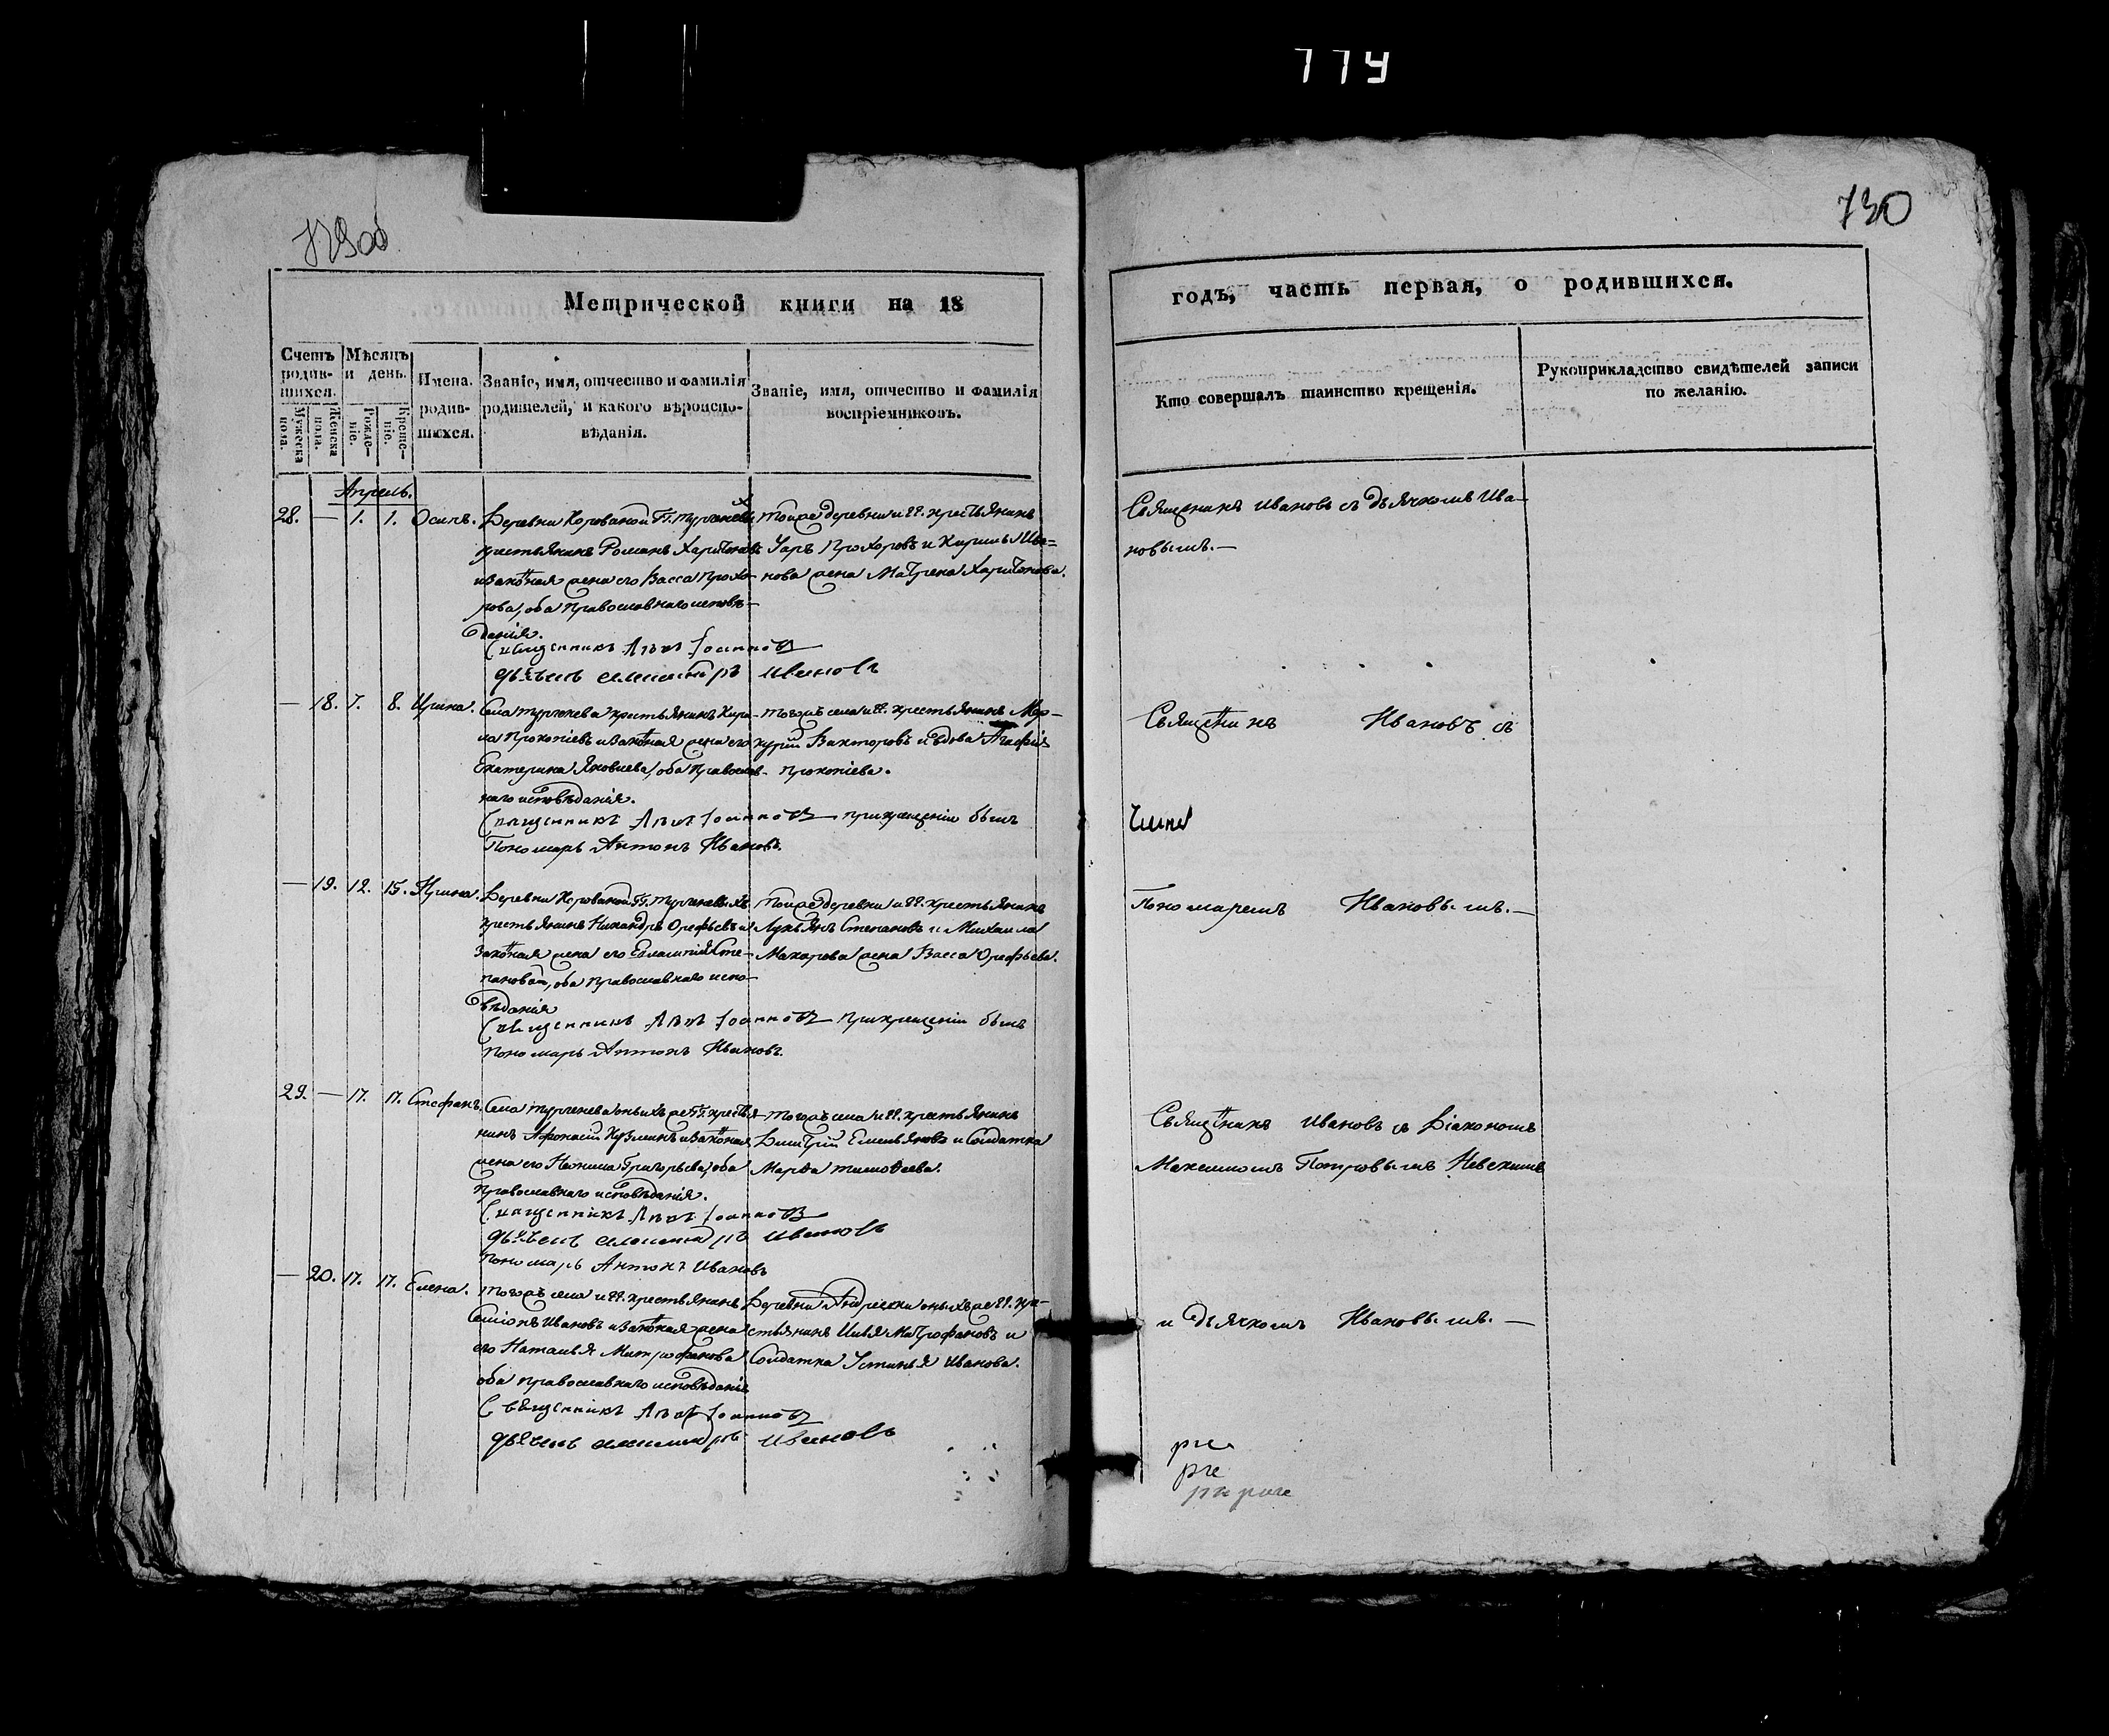 774
729об
730
Метрической книги на 18
годъ, часть первая, о родившихся.
Счетъ родив-шихся.
Мужеска пола.
Женска пола.
Мѣсяцъ и день.
Рожде-ніе.
Креще-ніе.
Имена. родив-шихся.
Званіе, имя, отчество и фамилія
родителей, и какого вѣроиспо-
вѣданія.
Званіе, имя, отчество и фамилія
воспріемниковъ.
Кто совершалъ таинство крещенія.
Рукоприкладство свидѣтелей записи
по желанію.
Апрель.
28. — 1. 1. Осипъ.
Деревни Корованой Гг. Тургеневыхъ
крестьянинъ Романъ Харитоновъ
и законная жена его Васса Прохо-
рова, оба православнаго исповѣ-
данія.
Священникъ Левъ Іоанновъ
дьячекъ Александръ Ивановъ
Тойже деревни и гг. крестьянинъ
Уаръ Прохоровъ и Кирилы Ива=
нова жена Матрена Харитонова.
Священникъ Ивановъ съ дьячкомъ Ива-
новымъ. —
— 18. 7. 8. Ирина.
Села Тургенева крестьянинъ Кири-
ла Прокопіевъ и законная жена его
Екатерина Яковлева, оба православ-
наго исповѣданія.
Священникъ Левъ Іоанновъ при крещеніи былъ
Пономарь Антонъ Ивановъ.
Тогожъ села и гг. крестьянинъ Мер-
курій Викторовъ и вдова Агафія
Прокопіева.
Священникъ Ивановъ съ
— 19. 12. 15. Ирина.
Деревни Корованой Гг. Тургеневыхъ
крестьянинъ Никандръ Орефьевъ и
законная жена его Евлампія Сте-
панова, оба православнаго испо-
вѣданія
Священникъ Левъ Іоанновъ при крещеніи былъ
пономарь Антонъ Ивановъ.
Тойже деревни и гг. крестьянинъ
Лукьянъ Степановъ и Михаила
Макарова жена Васса Орефьева.
Пономаремъ Ивановымъ. —
29. — 17. 17. Стефанъ.
Села Тургенева оныхъ же Гг. крестья-
нинъ Афонасій Кузминъ и законная
жена его Неонила Григорьева, оба
православнаго исповѣданія.
Священникъ Левъ Іоанновъ
дьячекъ Александръ Ивановъ
Пономарь Антонъ Ивановъ
Тогожъ села и гг. крестьянинъ
Дмитрій Емельяновъ и солдатка
Марфа Тимофеева.
Священникъ Ивановъ съ Діакономъ
Петровымъ
— 20. 17. 17. Елена.
Тогожъ села и гг. крестьянинъ
Симіонъ Ивановъ и законная жена
его Наталья Митрофанова
оба православнаго исповѣданія
Священникъ Левъ Іоанновъ
дьячекъ Александръ Ивановъ
Деревни Андреевки оныхъ же гг. кре-
стьянинъ Илья Митрофановъ и
солдатка Устинья Иванова.
и дьячкомъ Ивановымъ. —